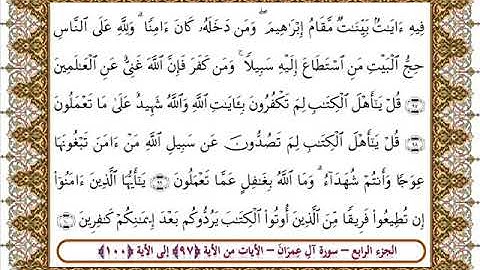 فِيهِ ءَايَٰتٌۢ بَيِّنَٰتٌ مَّقَامُ إِبْرَٰهِيمَ ۖ وَمَن دَخَلَهُۥ كَانَ ءَامِنًا ۗ وَلِلَّهِ عَلَى ٱلنَّاسِ
حِجُّ ٱلْبَيْتِ مَنِ ٱسْتَطَاعَ إِلَيْهِ سَبِيلًا ۚ وَمَن كَفَرَ فَإِنَّ ٱللَّهَ غَنِىٌّ عَنِ ٱلْعَٰلَمِينَ
﴿٩٧﴾ قُلْ يَٰٓأَهْلَ ٱلْكِتَٰبِ لِمَ تَكْفُرُونَ بِـَٔايَٰتِ ٱللَّهِ وَٱللَّهُ شَهِيدٌ عَلَىٰ مَا تَعْمَلُونَ
﴿٩٨﴾ قُلْ يَٰٓأَهْلَ ٱلْكِتَٰبِ لِمَ تَصُدُّونَ عَن سَبِيلِ ٱللَّهِ مَنْ ءَامَنَ تَبْغُونَهَا
عِوَجًا وَأَنتُمْ شُهَدَآءُ ۗ وَمَا ٱللَّهُ بِغَٰفِلٍ عَمَّا تَعْمَلُونَ ﴿٩٩﴾ يَٰٓأَيُّهَا ٱلَّذِينَ ءَامَنُوٓا۟
إِن تُطِيعُوا۟ فَرِيقًا مِّنَ ٱلَّذِينَ أُوتُوا۟ ٱلْكِتَٰبَ يَرُدُّوكُم بَعْدَ إِيمَٰنِكُمْ كَٰفِرِينَ ﴿١٠٠﴾
الجزء الرابع – سورة آلِ عِمرَان – الآيات من الآية ﴿٩٧﴾ إلى الآية ﴿١٠٠﴾